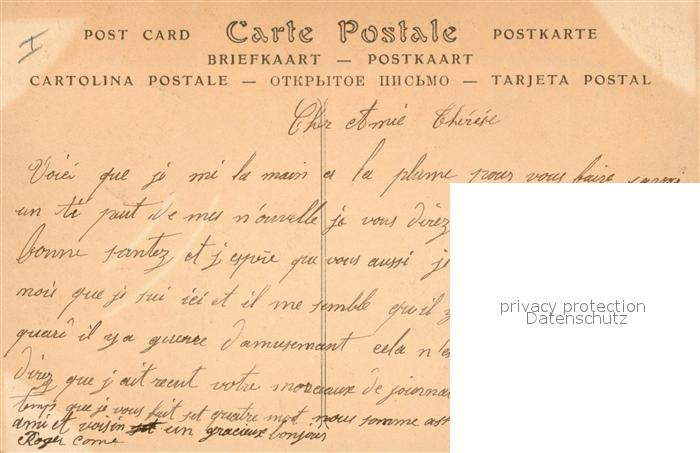 I
POST CARD Carte Postale POSTKARTE
BRIEFKAART — POSTKAART
CARTOLINA POSTALE — ОТКРЫТОЕ ПИСЬМО — TARJETA POSTAL
Cher Amié Thérèse
Voici que je mi la main a la plume pour vous faire savoir
un ti peut de mes n'ouvelle je vous direz
bonne santez et j'esprie que vous aussi je
mois que je sui ici et il me semble qu'il y
quarê il y a guerre d'amusemant cela n'es
direz que j'ait recut votre morceaux de journa
temp que je vous fait set quatre mot nous somme ass
ami et voisin un gracieux bonjour
Roger come
privacy protection
Datenschutz